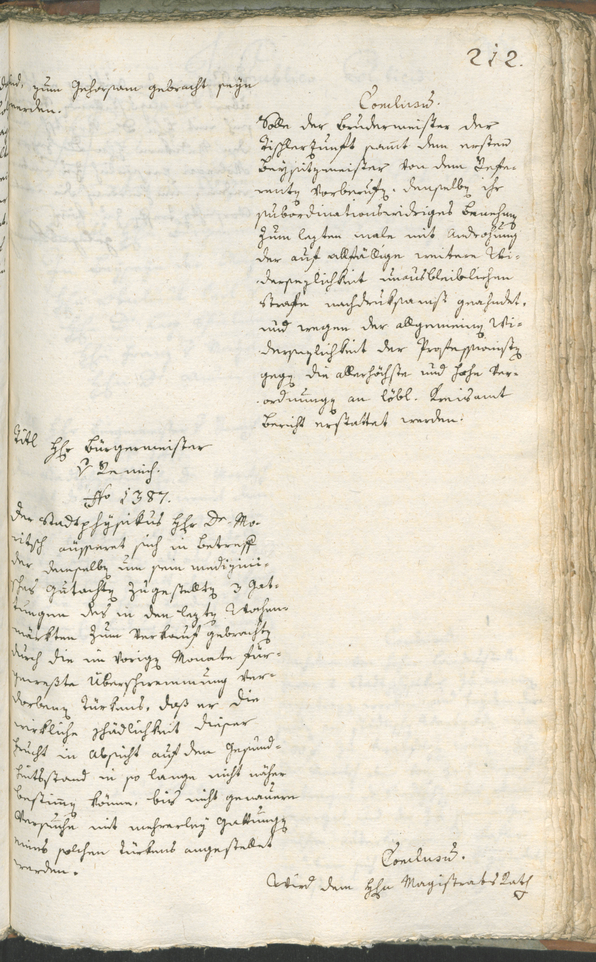 212.
zum Gehorsam gebracht seyn
werden.
Conclusum.
Solle der Brudermeister der
Tischlerzunft samt dem ersten
Beysitzmeister von dem Refe-
renten vorberufen, denselben ihr
subordinationswidriges Benehmen
zum lezten male mit Androhung
der auf allfällige weitere Wi-
dersezlichkeit unausbleiblichen
Strafe nachdruksamst geahndet,
und wegen der allgemeinen Wi-
dersezlichkeit der Professionisten
gegen die allerhöchste und hohe Ver-
ordnungen an löbl. Kreisamt
Bericht erstattet werden.
Titl Hr Bürgermeister
No 1387.
Der Stadtphysikus Hr Dr Mo-
ritsch äusseret sich in Betreff
der demselben um sein medizini-
sches Gutachten zugestellten 3 Gat-
tungen des in den lezten Wochen-
märkten zum Verkauf gebrachten
durch die im vorigen Monate für-
gewesste Überschwemmung ver-
dorbenen Türkens, daß er die
wirkliche Schädlichkeit dieser
Frucht in Absicht auf den Gesund-
heitsstand in so lange nicht näher
bestimmen könne, bis nicht genauere
Versuche mit mehrerley Gattungen
eines solchen Türkens angestellet
werden.
Conclusum.
Wird dem Hrn Magistrats Rath